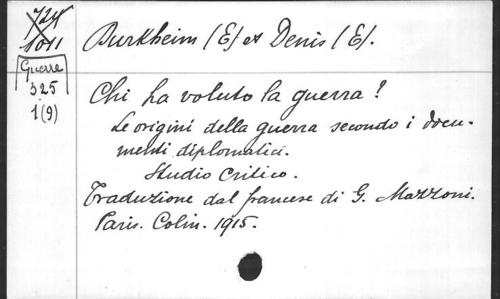 724
1011
Guerre
325
1(9)
Durkheim (E) et Denis (E).
Chi ha voluto la guerra?
Le origini della guerra secondo i docu-
menti diplomatici.
Studio Critico.
Traduzione dal francese di G. Mazzoni.
Paris. Colin. 1915.